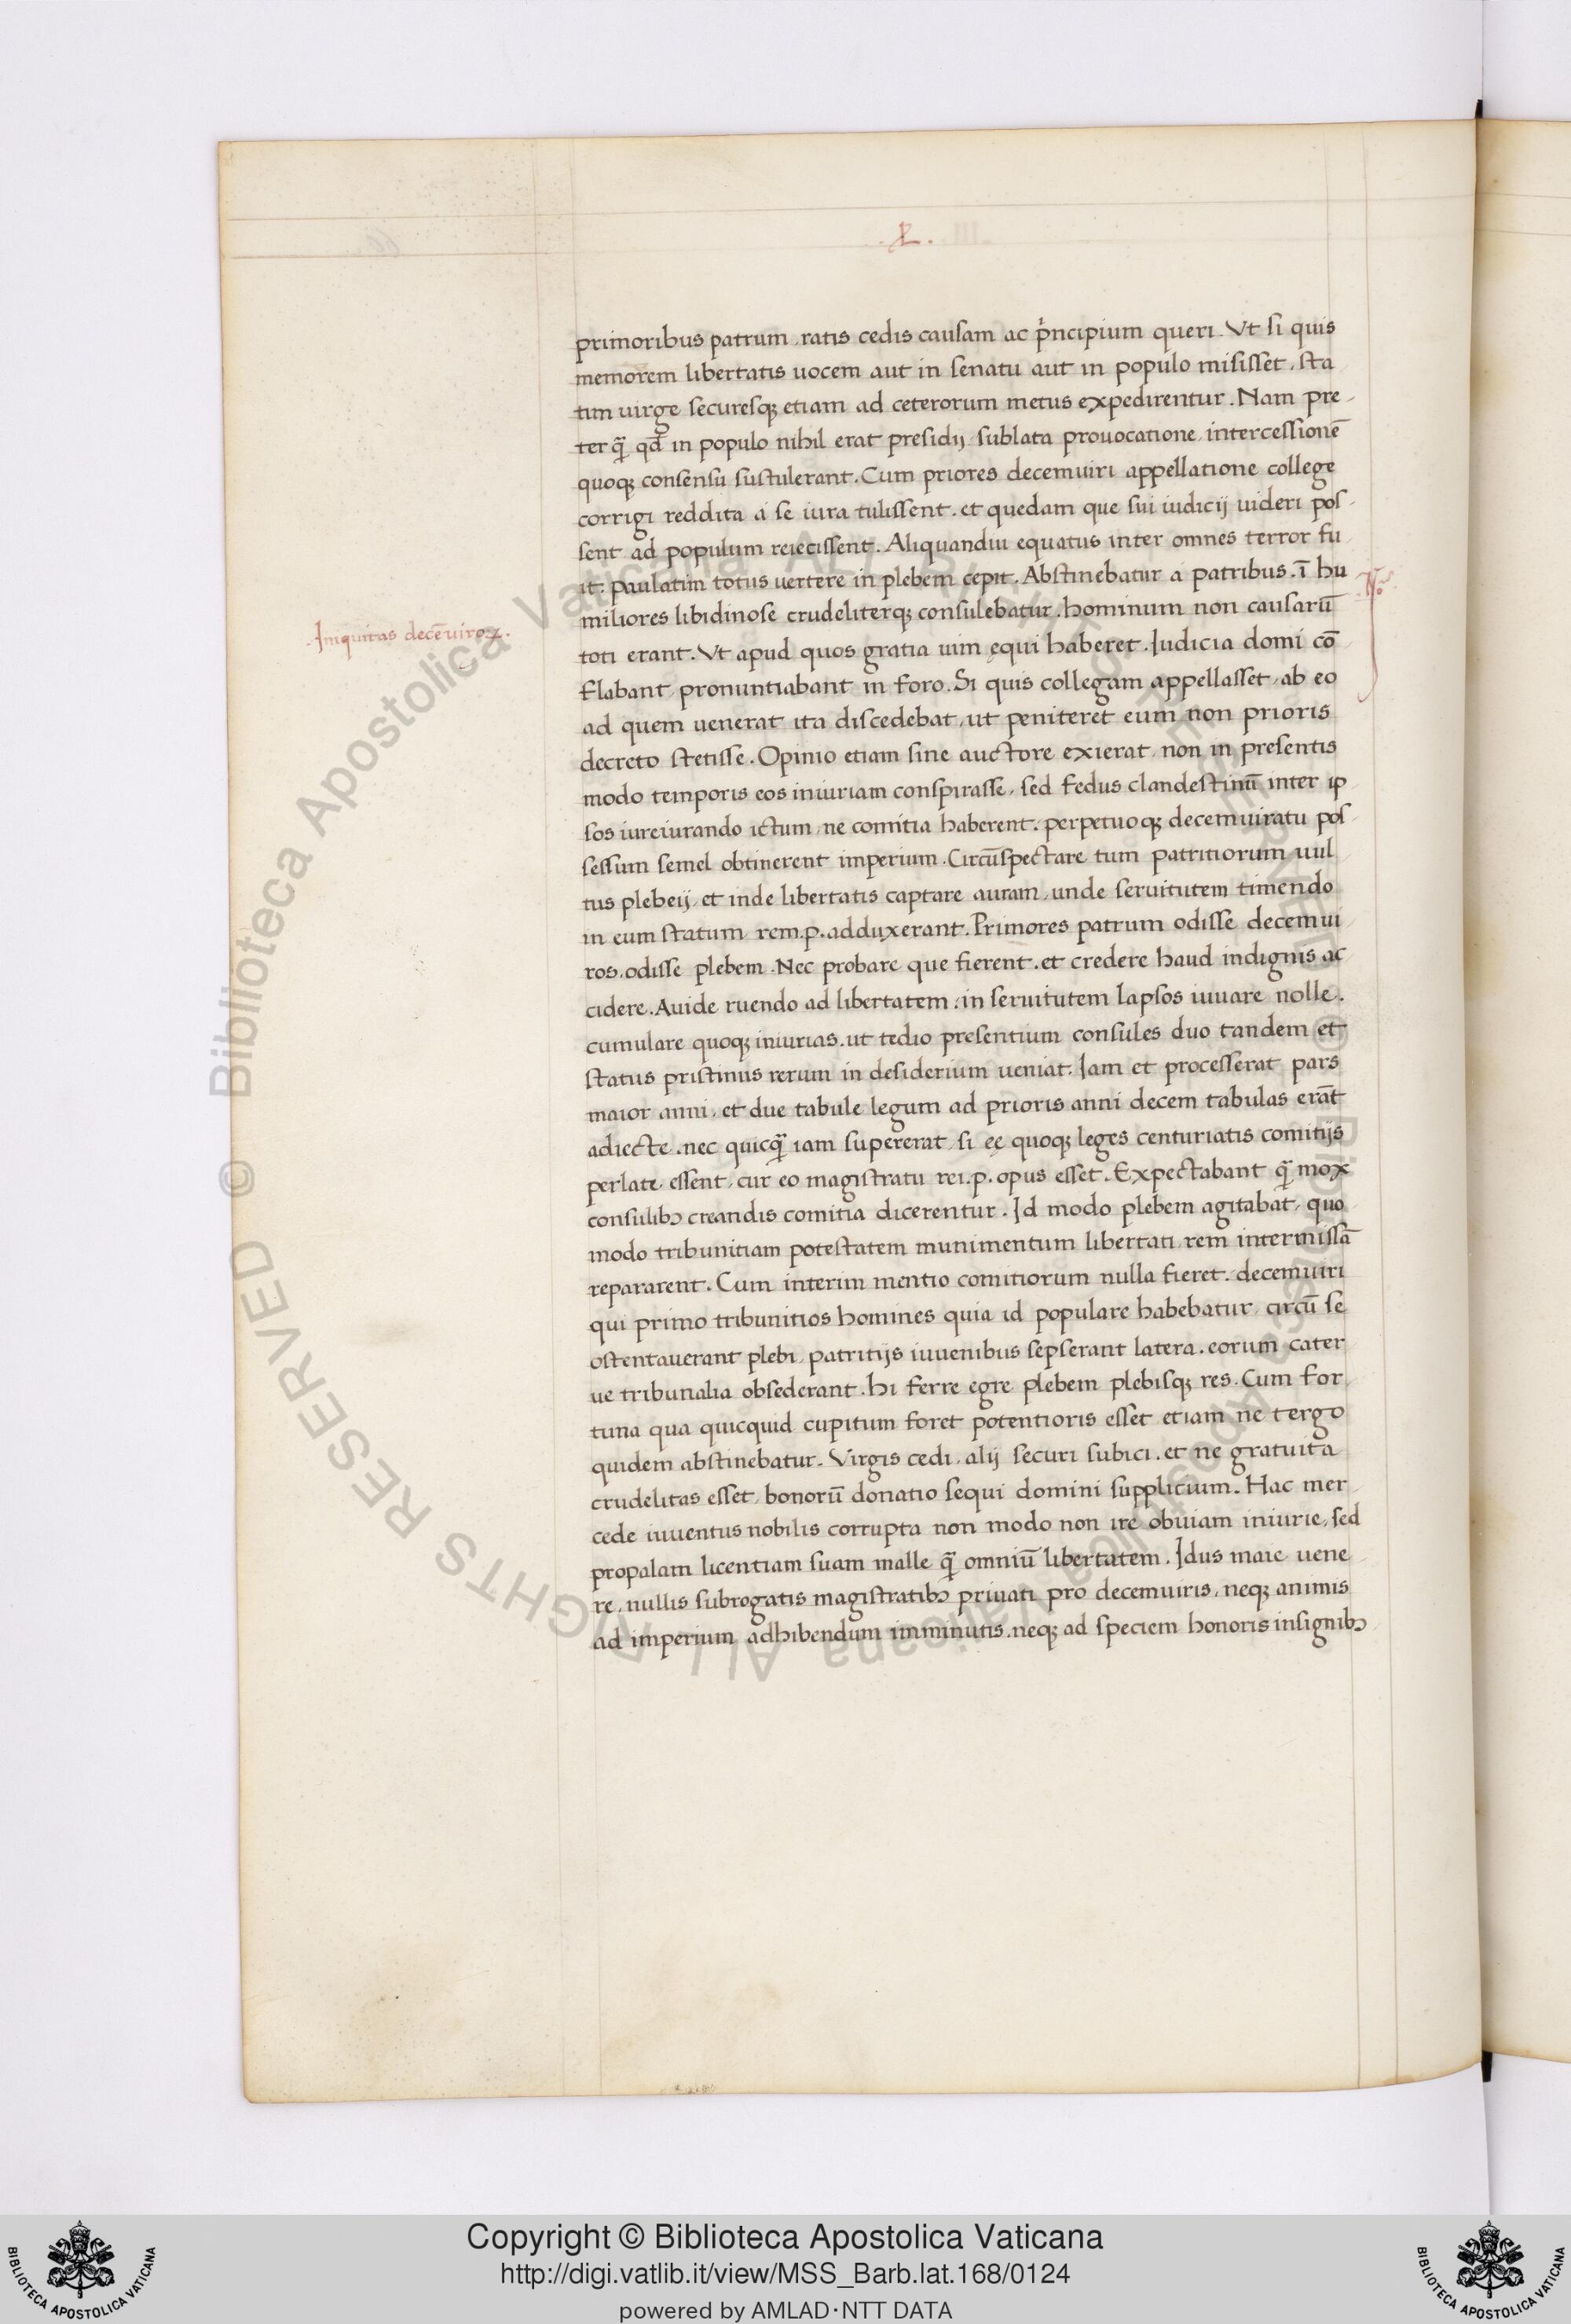 .L.
primoribus patrum, ratis cedis causam ac p̃ncipium queri. Vt si quis
memorem libertatis uocem aut in senatu aut in populo misisset, sta
tim uirge securesq; etiam ad ceterorum metus expedirentur. Nam pre
ter q̃ qđ in populo nihil erat presidij sublata prouocatione, intercessionē
quoq; consensu sustulerant. Cum priores decemuiri appellatione college
corrigi reddita a se iura tulissent. et quedam que sui iudicij uideri pos
sent ad populum reiecissent. Aliquandiu equatus inter omnes terror fu
it: paulatim totus uertere in plebem cepit. Abstinebatur a patribus. ī hu
miliores libidinose crudeliterq; consulebatur. hominum non causarū
.Iniquitas decēuiroꝝ.
toti erant. Vt apud quos gratia uim ęqui haberet. Iudicia domi cō
flabant, pronuntiabant in foro. Si quis collegam appellasset, ab eo
ad quem uenerat ita discedebat, ut peniteret eum non prioris
decreto stetisse. Opinio etiam sine auctore exierat, non in presentis
modo temporis eos iniuriam conspirasse, sed fedus clandestinū inter ip
sos iureiurando ictum, ne comitia haberent. perpetuoq; decemuiratu pos
sessum semel obtinerent imperium. Circūspectare tum patritiorum uul
tus plebeij, et inde libertatis captare auram, unde seruitutem timendo
in eum statum rem.p. adduxerant. Primores patrum odisse decemui
ros, odisse plebem. Nec probare que fierent. et credere haud indignis ac
cidere. Auide ruendo ad libertatem: in seruitutem lapsos iuuare nolle.
cumulare quoq; iniurias. ut tedio presentium consules duo tandem et
status pristinus rerum in desiderium ueniat. Iam et processerat pars
maior anni, et due tabule legum ad prioris anni decem tabulas erāt
adiecte. nec quicq̃ iam supererat, si eę quoq; leges centuriatis comitijs
perlate, essent, cur eo magistratu rei.p. opus esset. Expectabant q̃ mox
consulibꝫ creandis comitia dicerentur. Id modo plebem agitabat, quo
modo tribunitiam potestatem munimentum libertati, rem intermissā
repararent. Cum interim mentio comitiorum nulla fieret. decemuiri
qui primo tribunitios homines quia id populare habebatur, circū se
ostentauerant plebi, patritijs iuuenibus sepserant latera. eorum cater
ue tribunalia obsederant. hi ferre egre plebem plebisq; res. Cum for
tuna qua quicquid cupitum foret potentioris esset etiam ne tergo
quidem abstinebatur. Virgis cedi, alij securi subici. et ne gratuita
crudelitas esset, bonorū donatio sequi domini supplicium. Hac mer
cede iuuentus nobilis corrupta non modo non ire obuiam iniurie, sed
propalam licentiam suam malle q̃ omniū libertatem. Idus maie uene
re, nullis subrogatis magistratibꝫ priuati pro decemuiris, neq; animis
ad imperium adhibendum imminutis. neq; ad speciem honoris insignibꝫ
© Biblioteca Apostolica Vaticana ALL RIGHTS RESERVED
Copyright © Biblioteca Apostolica Vaticana
http://digi.vatlib.it/view/MSS_Barb.lat.168/0124
powered by AMLAD·NTT DATA
BIBLIOTECA APOSTOLICA VATICANA
BIBLIOTECA APOSTOLICA VATICANA